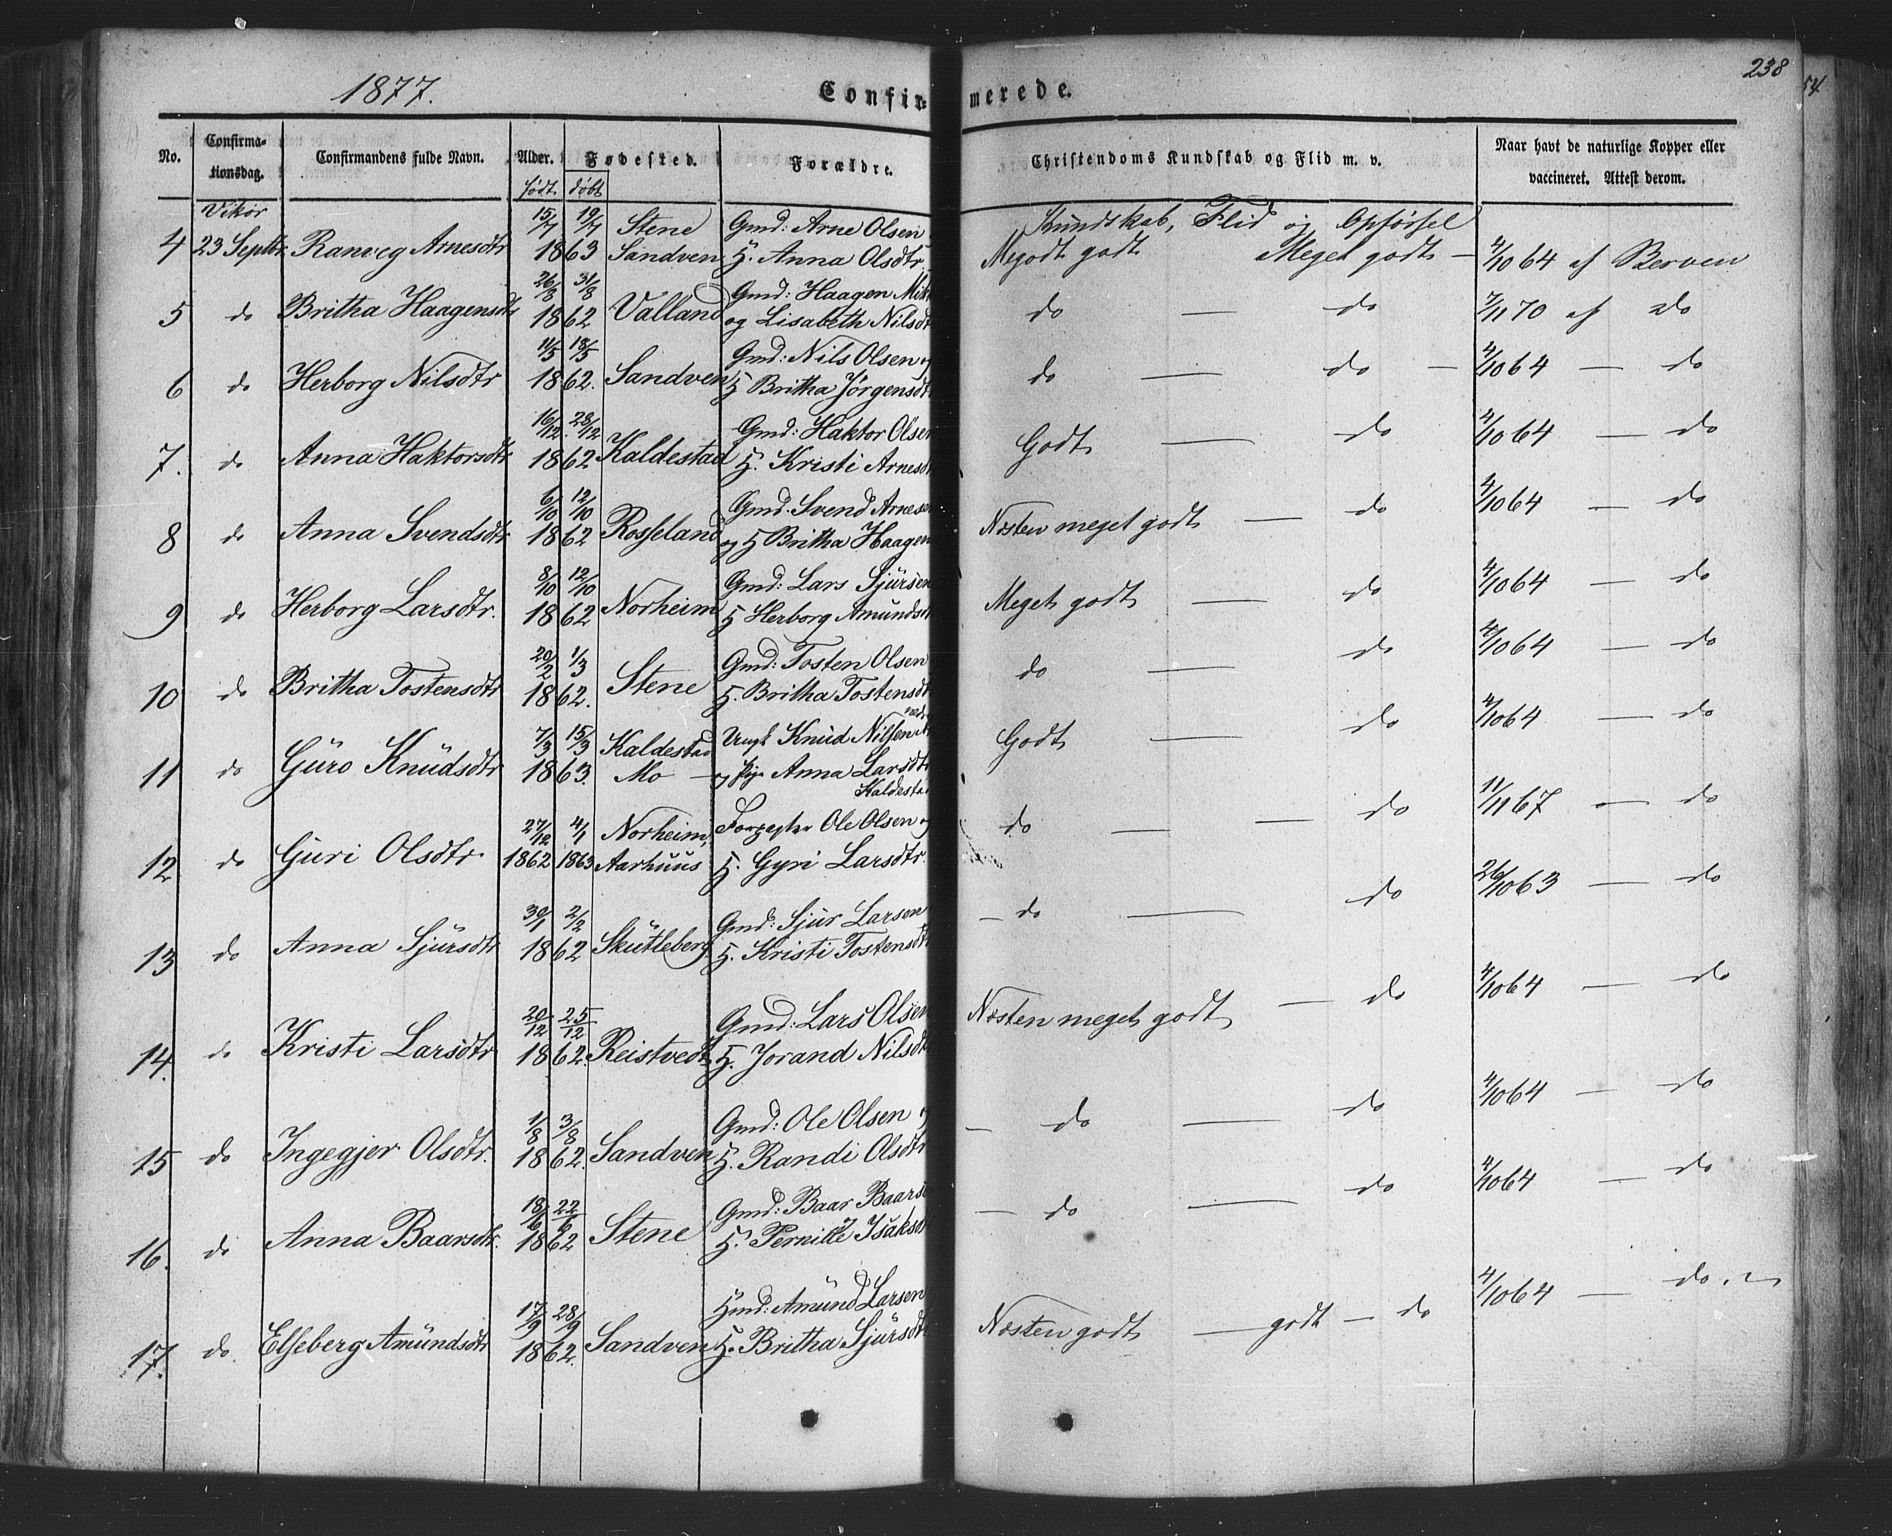 1877.
Confirmerede.
238
54
No.
Confirmationsdag.
Confirmandens fulde Navn.
Alder.
Fødested.
Forældre.
Christendoms Kundskab og Flid m. v.
Naar havt de naturlige Kopper eller
vaccineret. Attest derom.
født døbt
Vikør 15/7 19/7 Stene Gmd: Arne Olsen Kundskab, Flid og Opførsel
4 23 Septbr. Ranveg Arnesdtr 1863 Sandven H. Anna Olsdtr. Megodt godt Meget godt — 4/10 64 af Berven
26/8 31/8 Gmd: Haagen
5 do Britha Haagensdtr 1862 Valland og Lisabeth Nilsdtr do — do 7/11 70 af do
11/5 18/5 Gmd: Nils Olsen og
6 do Herborg Nilsdtr 1862. Sandven H Britha Jørgensdtr do — do — 4/10 64 — do
16/12 28/12 Gmd: Haktor Olsen
7. do Anna Haktorsdtr 1862 Kaldestad H. Kristi Arnesdtr Godt — do 4/10 64 — do
6/10 12/10 Gmd. Svend Arnesen
8 do Anna Svendsdtr 1862 Rosseland og H Britha Haagen Næsten meget godt — do 4/10 64 — do
8/10 12/10 Gmd: Lars Sjürsen
9 do Herborg Larsdtr. 1862 Norheim H Herborg Amundsd Meget godt — do 4/10 64 — do
20/2 1/3 Gmd: Tosten Olsen
10 do Britha Tostensdtr 1862. Stene H. Britha Tostensdtr do — do 4/10 64 — do
7/3 15/3 Kaldestad Ungk Knud Nilsen
11 do Güro Knüdsdtr 1863. Mo — og Pige Anna Larsdtr Godt — do 4/10 64 — do
Kaldestad
27/12 4/1 Norheim, Ole Olsen og
12 do Guri Olsdtr 1862 1863 Aarhuus H. Gyri Larsdtr. do — — do 11/11 67 — do
30/1 2/2 Gmd: Sjur Larsen
13 do Anna Sjürsdtr 1862 Skutleberg H. Kristi Tostensdtr — do — do 26/10 63 — do
20/12 25/12 Gmd: Lars Olsen
14. do Kristi Larsdtr 1862. Reistvedt H. Jorand Nilsdtr Næsten meget godt — do 4/10 64 — do
1/8 3/8 Gmd: Ole Olsen og
15 do Ingegjer Olsdtr. 1862. Sandven H. Randi Olsdtr — do — do 4/10 64 — do
18/6 22/6 Gmd: Baar Baarse
16. do Anna Baarsdtr. 1862 Stene H. Pernille Isaksdtr — do — do 4/10 64 — do
17/9 28/9 Hmd: Amünd Larsen
17. do Elseberg Amündsdtr 1862. Sandven H. Britha Sjürsdtr Næsten godt — godt — do 4/10 64 — do.